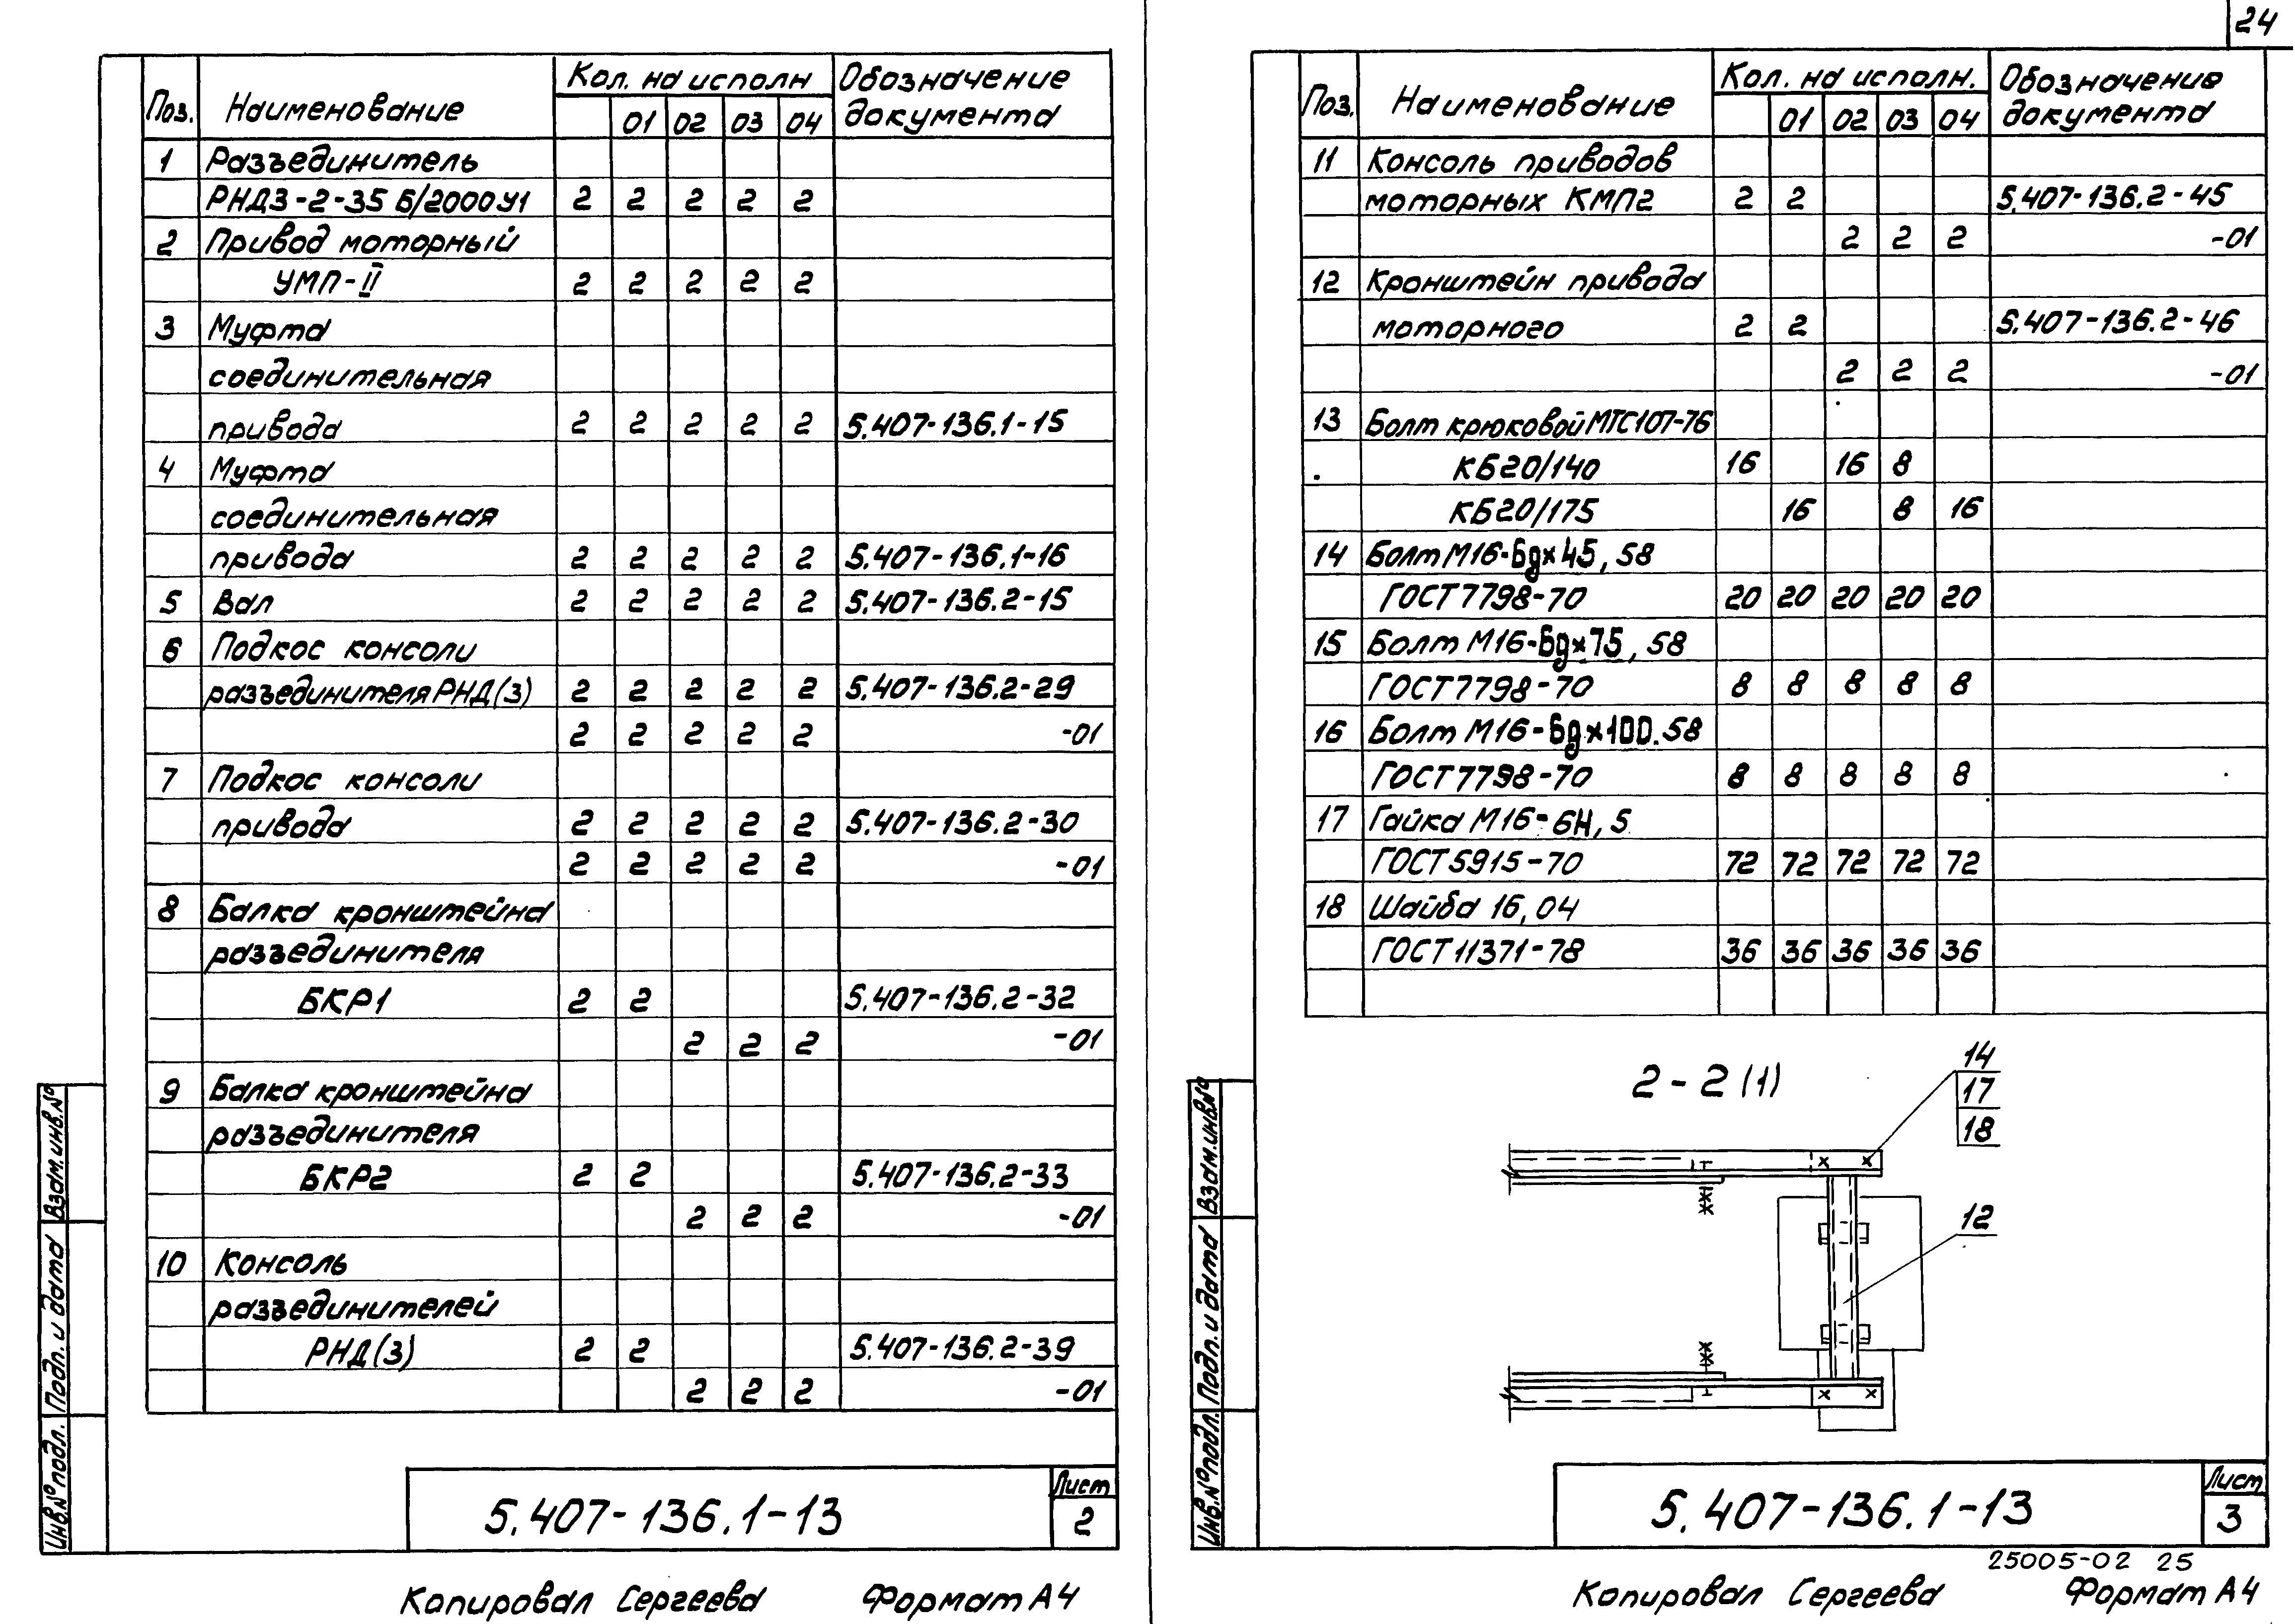 24
Поз. Наименование Кол. на исполн Обозначение документа
01 02 03 04
1 Разъединитель
РНДЗ-2-35 Б/2000У1 2 2 2 2 2
2 Привод моторный
УМП-II 2 2 2 2 2
3 Муфта
соединительная
привода 2 2 2 2 2 5.407-136.1-15
4 Муфта
соединительная
привода 2 2 2 2 2 5.407-136.1-16
5 Вал 2 2 2 2 2 5.407-136.2-15
6 Подкос консоли
разъединителя РНД(З) 2 2 2 2 2 5.407-136.2-29
2 2 2 2 2 -01
7 Подкос консоли
привода 2 2 2 2 2 5.407-136.2-30
2 2 2 2 2 -01
8 Балка кронштейна
разъединителя
БКР1 2 2 5.407-136.2-32
2 2 2 -01
9 Балка кронштейна
разъединителя
БКР2 2 2 5.407-136.2-33
2 2 2 -01
10 Консоль
разъединителей
РНД(З) 2 2 5.407-136.2-39
2 2 2 -01
Инв.№подл. Подп. и дата Взам.инв.№
5.407-136.1-13
Лист
2
Копировал Сергеева Формат А4
Поз. Наименование Кол. на исполн. Обозначение документа
01 02 03 04
11 Консоль приводов
моторных КМП2 2 2 5.407-136.2-45
2 2 2 -01
12 Кронштейн привода
моторного 2 2 5.407-136.2-46
2 2 2 -01
13 Болт крюковой МТС107-76
КБ20/140 16 16 8
КБ20/175 16 8 16
14 Болт М16-6gx45, 58
ГОСТ7798-70 20 20 20 20 20
15 Болт М16-6gx75, 58
ГОСТ7798-70 8 8 8 8 8
16 Болт М16-6gx100.58
ГОСТ7798-70 8 8 8 8 8
17 Гайка М16-6Н, 5
ГОСТ5915-70 72 72 72 72 72
18 Шайба 16, 04
ГОСТ11371-78 36 36 36 36 36
2-2 (1)
14
17
18
12
Инв.№подл. Подп. и дата Взам.инв№
5.407-136.1-13
Лист
3
25005-02 25
Копировал Сергеева Формат А4